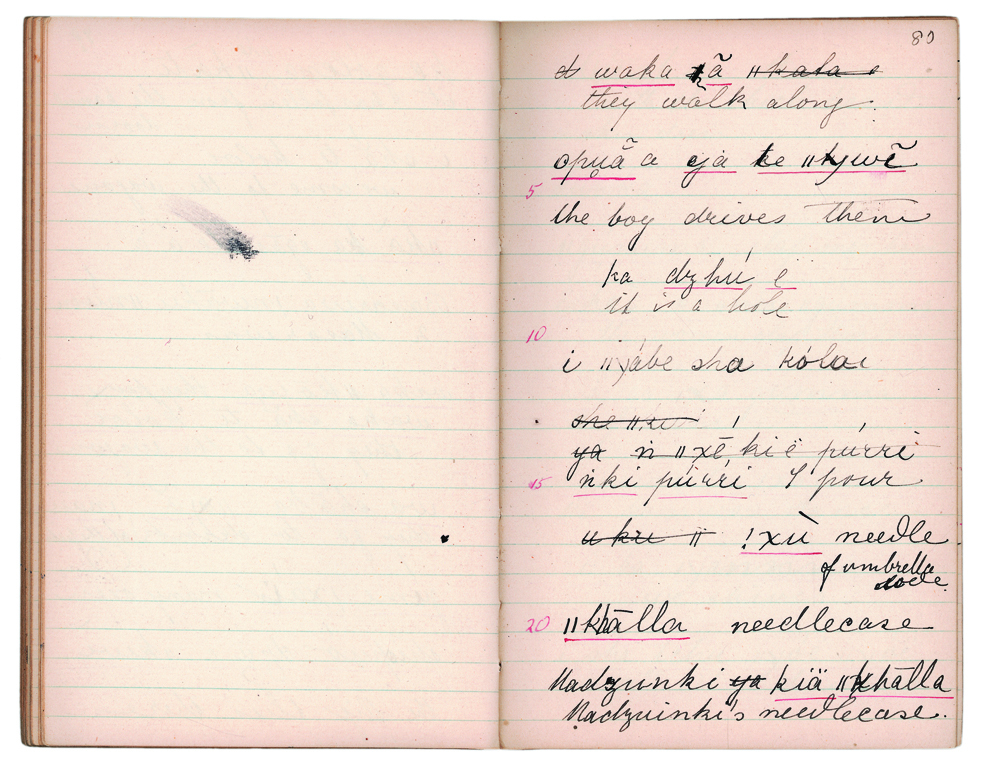 80
waka ǁkata e
they walk along.
opuã a eja ke ǁkywẽ
5
the boy drives them
ka dzhú e
it is a hole
10
i ǁχábe sha kólai
she
ya ṅ ǁxē kië púrri
15 ṅki púrri I pour
u kru ǁ !xù needle
of umbrella
20 ǁkhālla needlecase
Nadzuinki ya kiä ǁkhālla
Nadzuinki's needlecase.